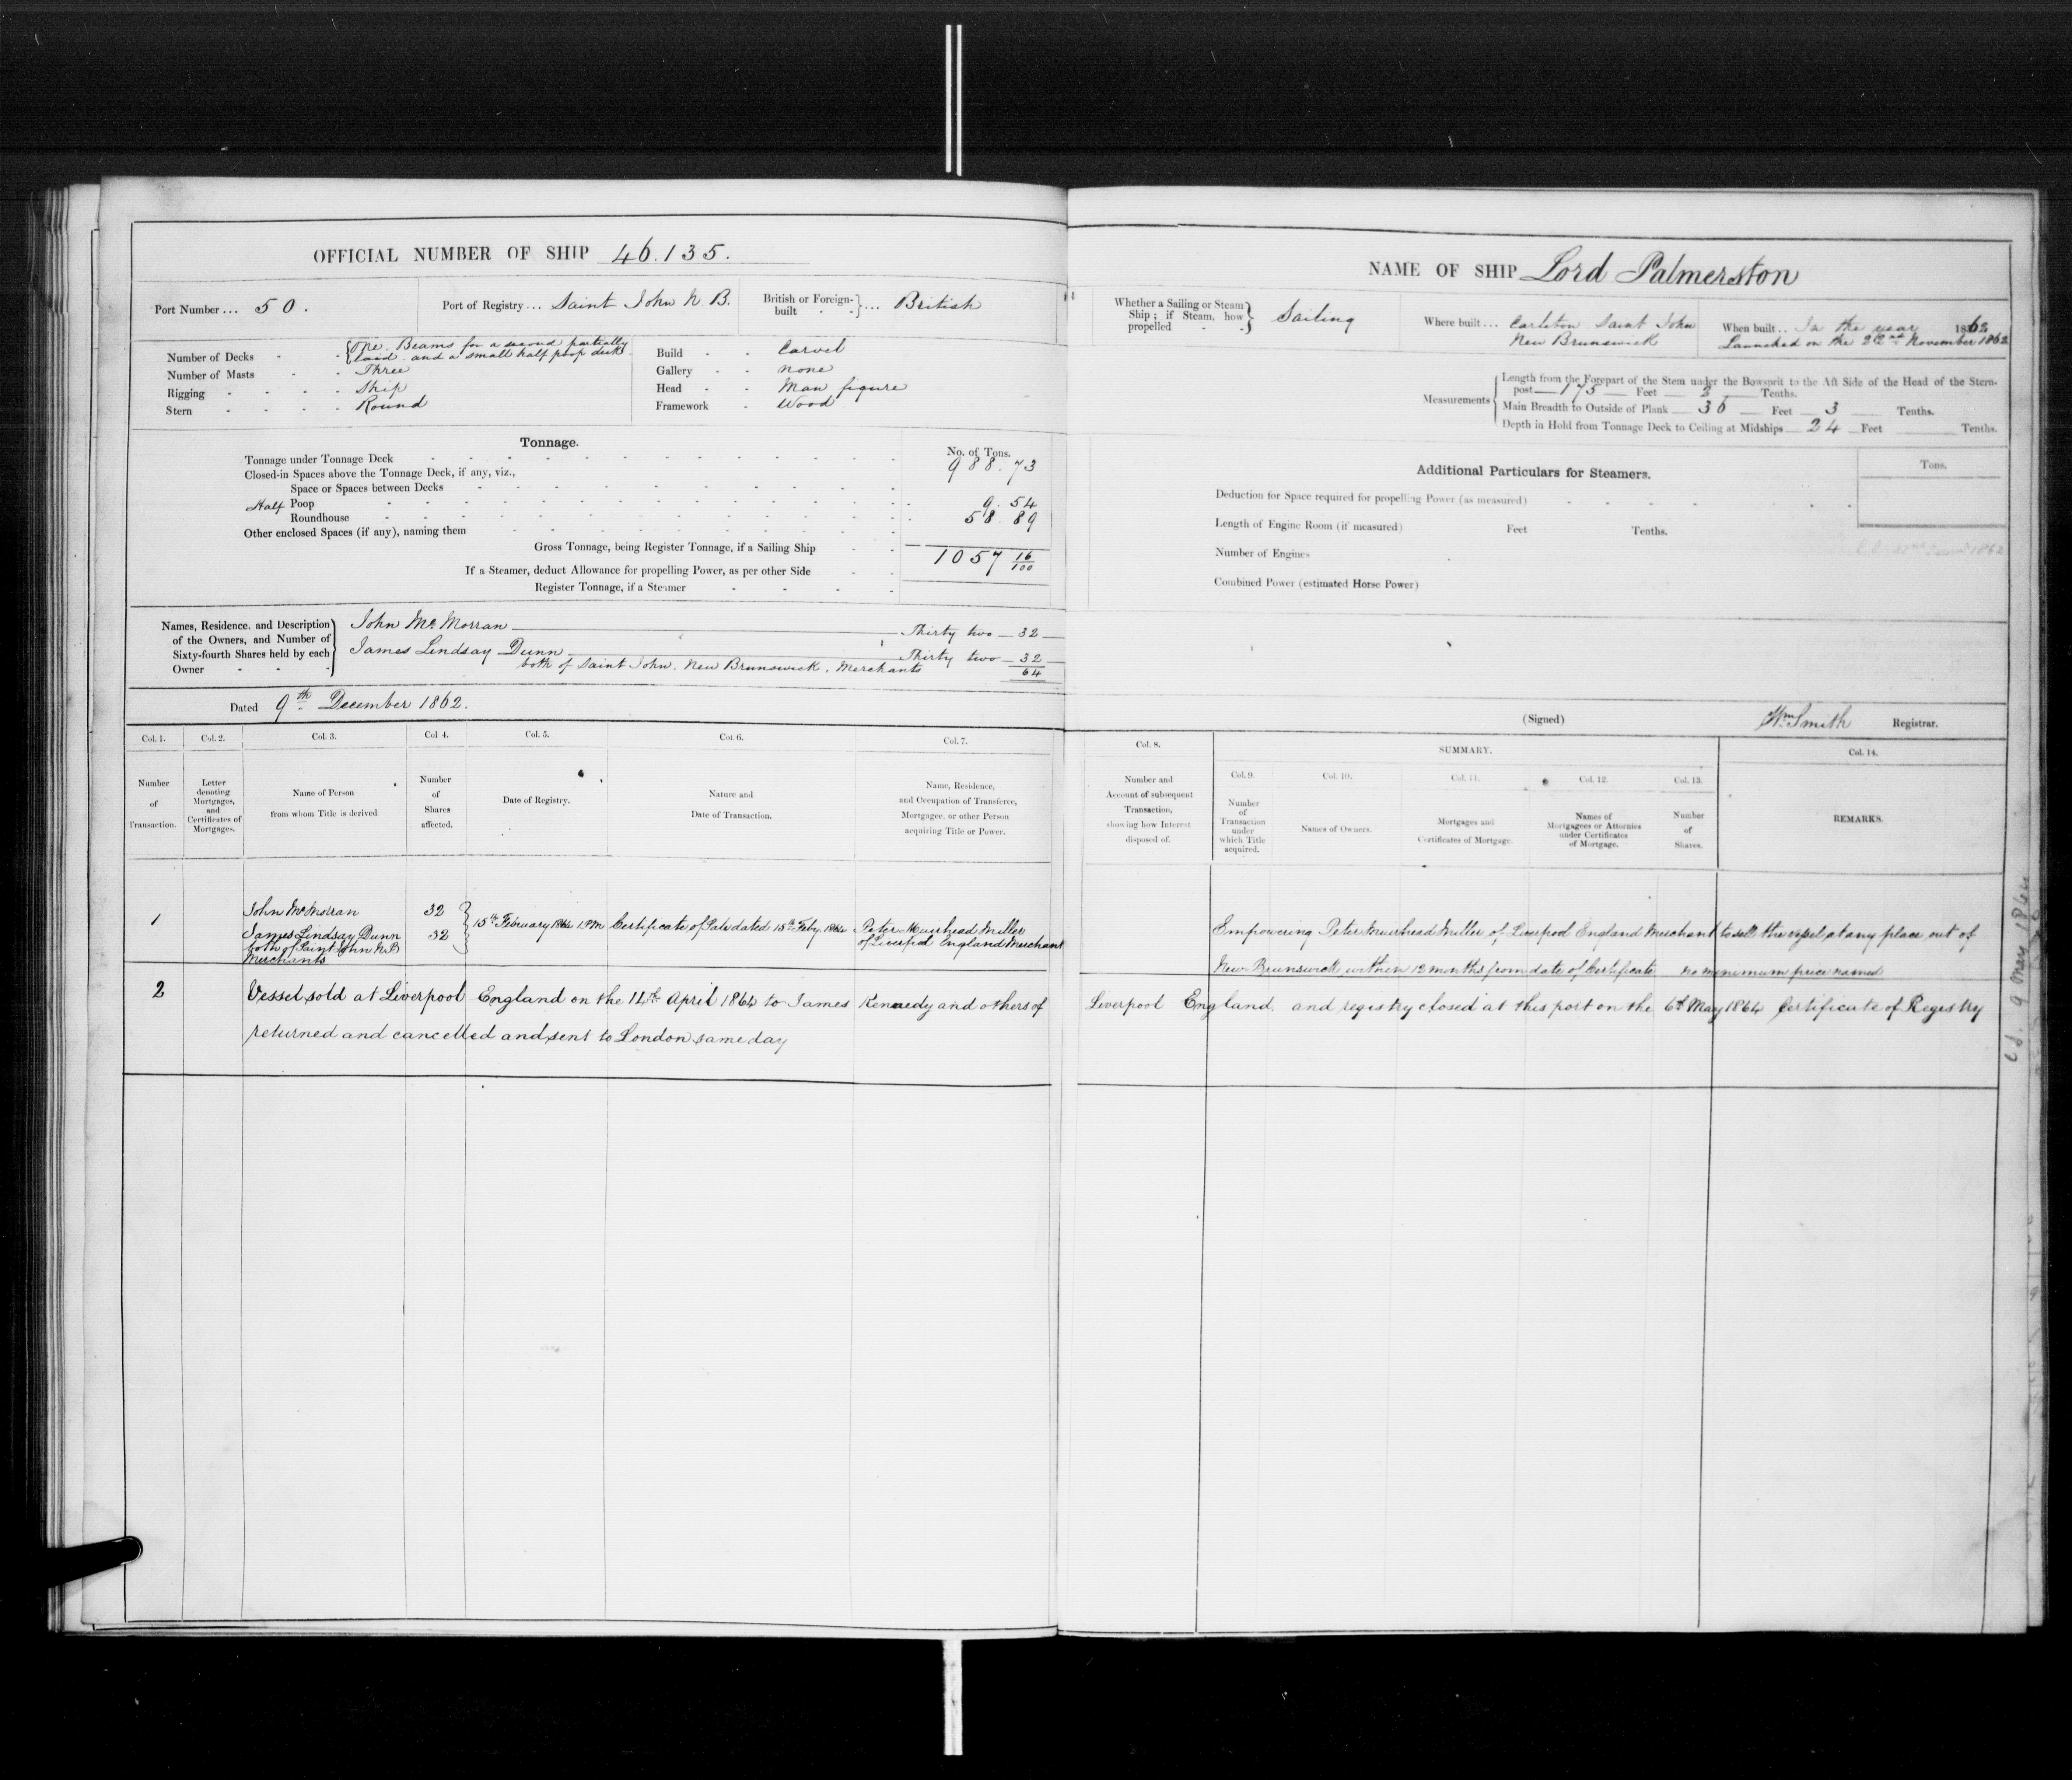 OFFICIAL NUMBER OF SHIP 46.135.
Port Number ... 50.
Port of Registry ... Saint John N. B.
British or Foreign-built ... British
Number of Decks - One. Beams for a second partially
laid. and a small half poop deck.
Number of Masts - - Three
Rigging - - - - Ship
Stern - - - - Round
Build - - Carvel
Gallery - - none
Head - - Man figure
Framework - Wood
Tonnage.
No. of Tons.
Tonnage under Tonnage Deck 988.73
Closed-in Spaces above the Tonnage Deck, if any, viz.,
Space or Spaces between Decks
Half Poop 9.54
Roundhouse 58.89
Other enclosed Spaces (if any), naming them
Gross Tonnage, being Register Tonnage, if a Sailing Ship 1057 16/100
If a Steamer, deduct Allowance for propelling Power, as per other Side
Register Tonnage, if a Steamer
Names, Residence, and Description
of the Owners, and Number of
Sixty-fourth Shares held by each
Owner
John McMorran Thirty two 32
James Lindsay Dunn Thirty two 32
both of Saint John. New Brunswick. Merchants 64
Dated 9th December 1862.
Col. 1. Col. 2. Col. 3. Col 4. Col. 5. Col 6. Col. 7.
Number
of
Transaction.
Letter
denoting
Mortgages,
and
Certificates of
Mortgages.
Name of Person
from whom Title is derived
Number
of
Shares
affected.
Date of Registry.
Nature and
Date of Transaction.
Name, Residence,
and Occupation of Transferee,
Mortgagee, or other Person
acquiring Title or Power.
1
John McMorran 32
James Lindsay Dunn 32
both of Saint John N.B
Merchants
15th February 1864 1 PM
Certificate of Sale dated 15th Feby 1864
Peter Muirhead Miller
of Liverpool England Merchant
2 Vessel sold at Liverpool England on the 14th April 1864 to James Kennedy and others of
returned and cancelled and sent to London same day
NAME OF SHIP Lord Palmerston
Whether a Sailing or Steam
Ship; if Steam, how
propelled
Sailing
Where built ... Carleton Saint John
New Brunswick
When built .. In the year 1862
Launched on the 22nd November 1862
Measurements
Length from the Forepart of the Stem under the Bowsprit to the Aft Side of the Head of the Stern-
post 175 Feet 2 Tenths.
Main Breadth to Outside of Plank 36 Feet 3 Tenths.
Depth in Hold from Tonnage Deck to Ceiling at Midships 24 Feet Tenths.
Additional Particulars for Steamers.
Tons.
Deduction for Space required for propelling Power (as measured)
Length of Engine Room (if measured) Feet Tenths.
Number of Engines
Combined Power (estimated Horse Power)
(Signed) Wm Smith Registrar.
Col. 8.
SUMMARY.
Col. 14.
Col. 9. Col. 10. Col. 11. Col. 12. Col. 13.
Number and
Account of subsequent
Transaction,
showing how Interest
disposed of.
Number
of
Transaction
under
which Title
acquired.
Names of Owners.
Mortgages and
Certificates of Mortgage.
Names of
Mortgagees or Attornies
under Certificates
of Mortgage.
Number
of
Shares.
REMARKS.
Empowering Peter Muirhead Miller of Liverpool England Merchant to sell the vessel at any place out of
New Brunswick within 12 months from date of Certificate no minimum price named
Liverpool England. and registry closed at this port on the 6th May 1864 Certificate of Registry
9 May 1864